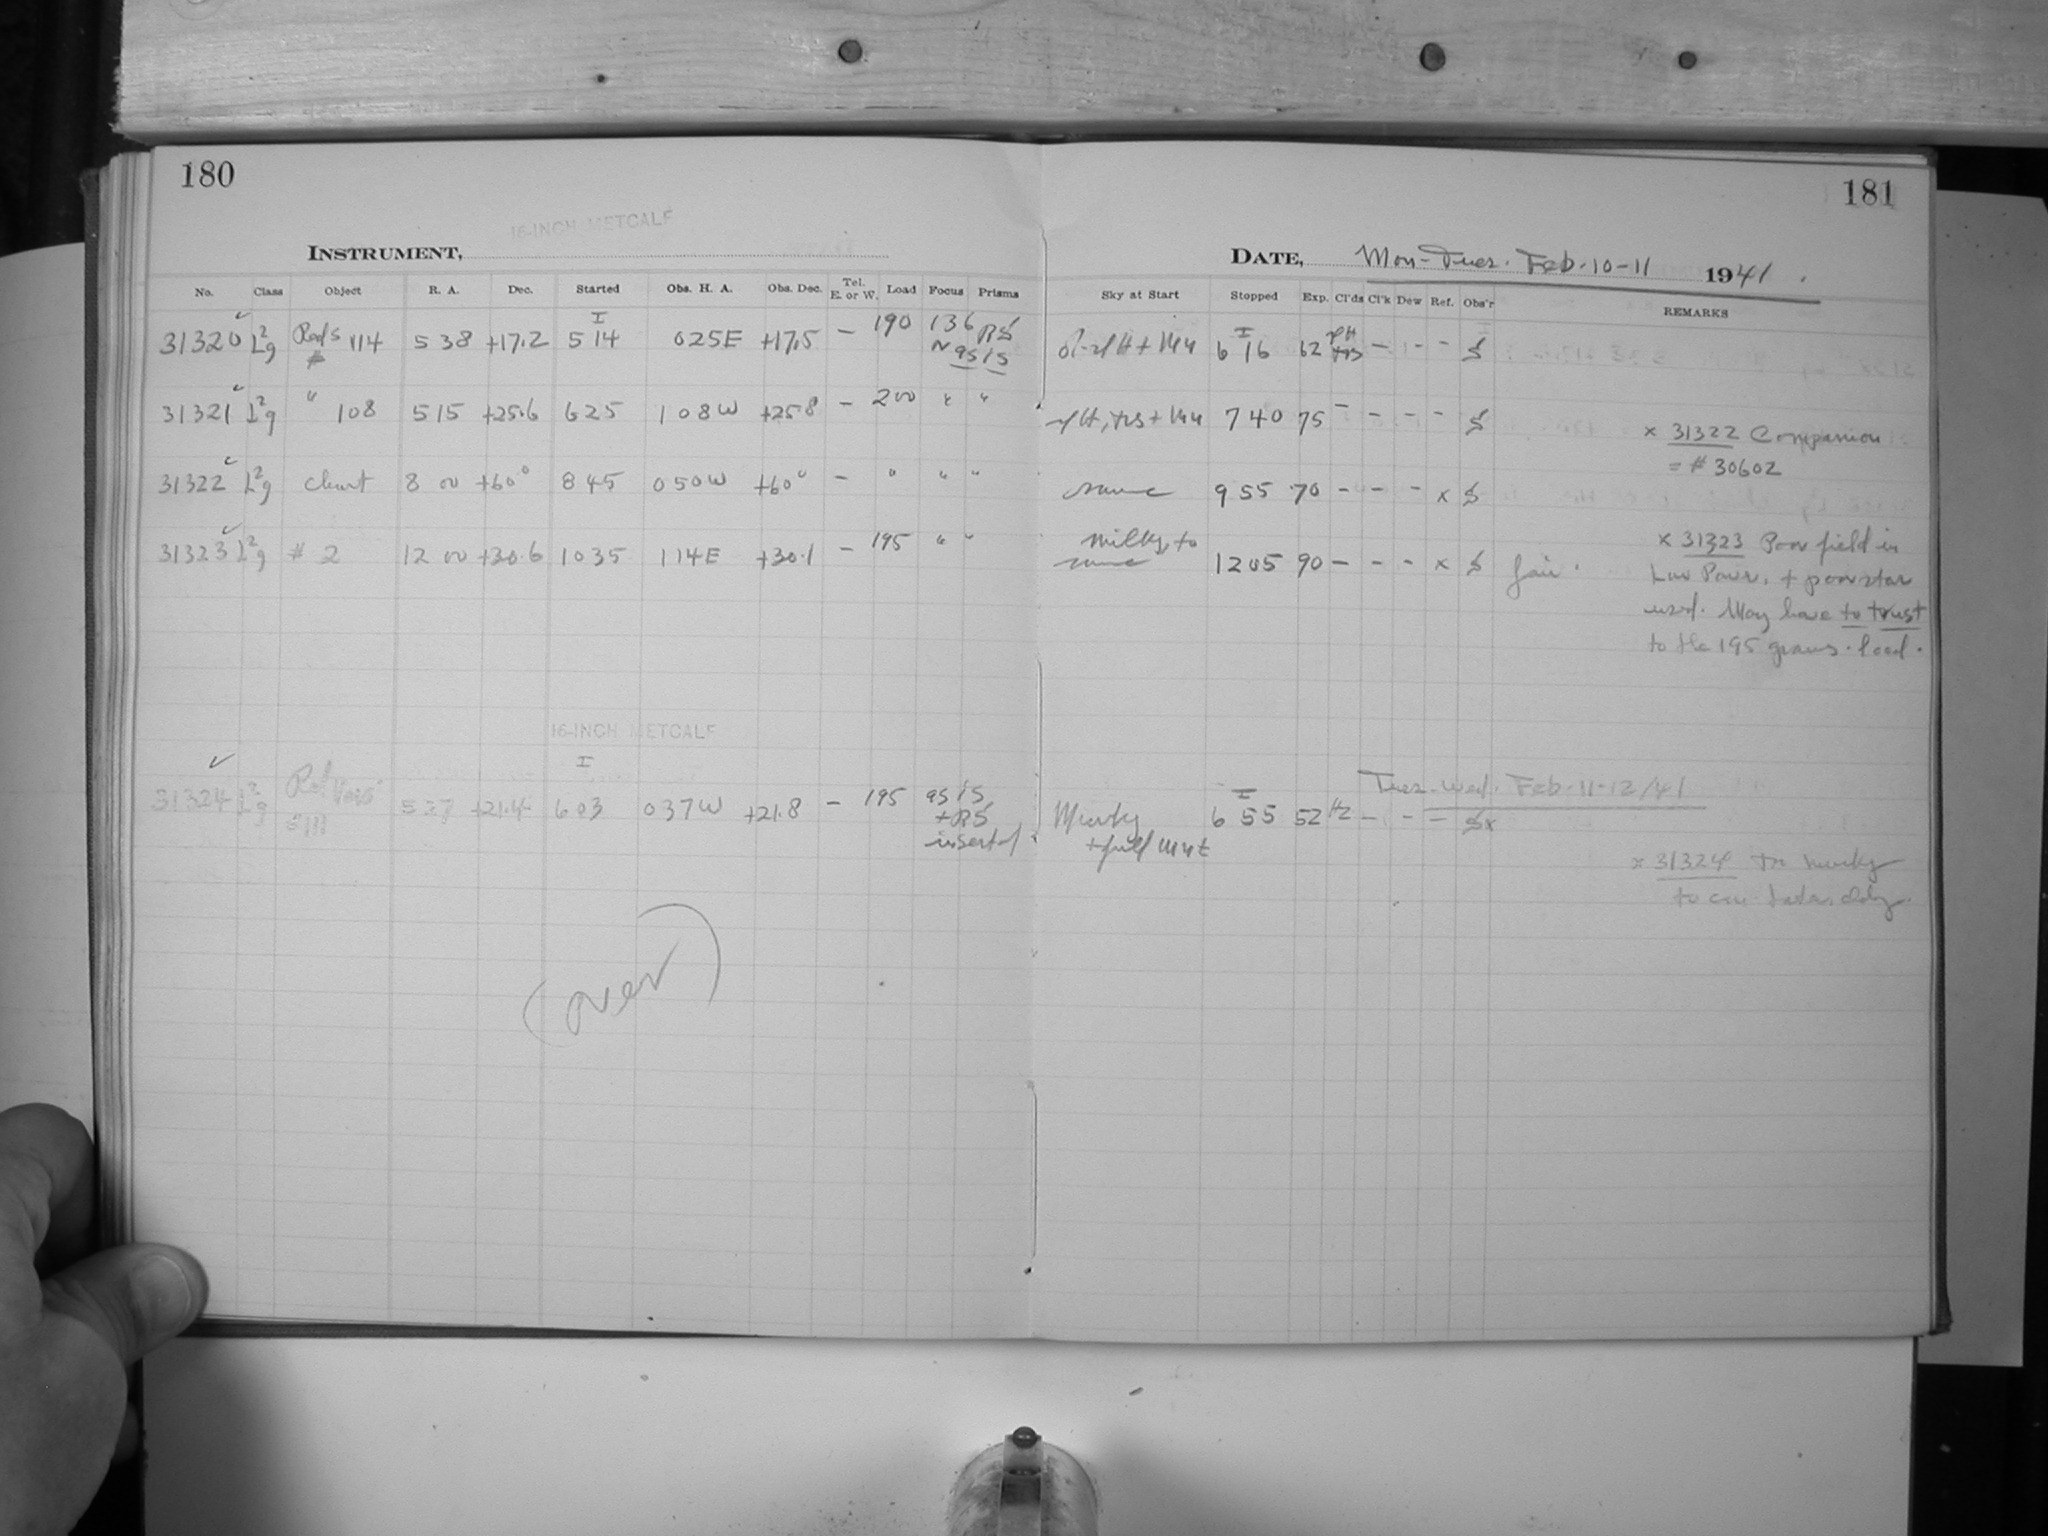 180
181
16-INCH METCALF
INSTRUMENT,
DATE, Mon-Tues. Feb. 10-11 1941.
No. Class Object R. A. Dec. Started Obs. H. A. Obs. Dec. Tel. E. or W. Load Focus Prisms Sky at Start Stopped Exp. Cl'ds Cl'k Dew Ref. Obs'r REMARKS
31320 114 5 38 +17.2 5 14 0 25E +17.5 – 190 136 as is 6 16 62 – – –
31321 " 108 5 15 +25.6 6 25 1 08W +25.8 – 200 " " 7 40 75 – – – –
x 31322 Companion
= # 30602
31322 8 00 +60° 8 45 0 50W +60° – " " " same 9 55 70 – – – x
31323 # 2 12 00 +30.6 10 35 1 14E +30.1 – 195 " " Milky to same 12 05 90 – – – x fair.
x 31323 Poor field in
Low Power, + poor star
used. May have to trust
to the 195 grams load.
16-INCH METCALF
Tues-Wed. Feb-11-12/41
31324 5 37 +21.4 6 03 0 37W +21.8 – 195 as is + inserted Murky + full 6 55 52 – – –
x 31324 Too murky
(over)